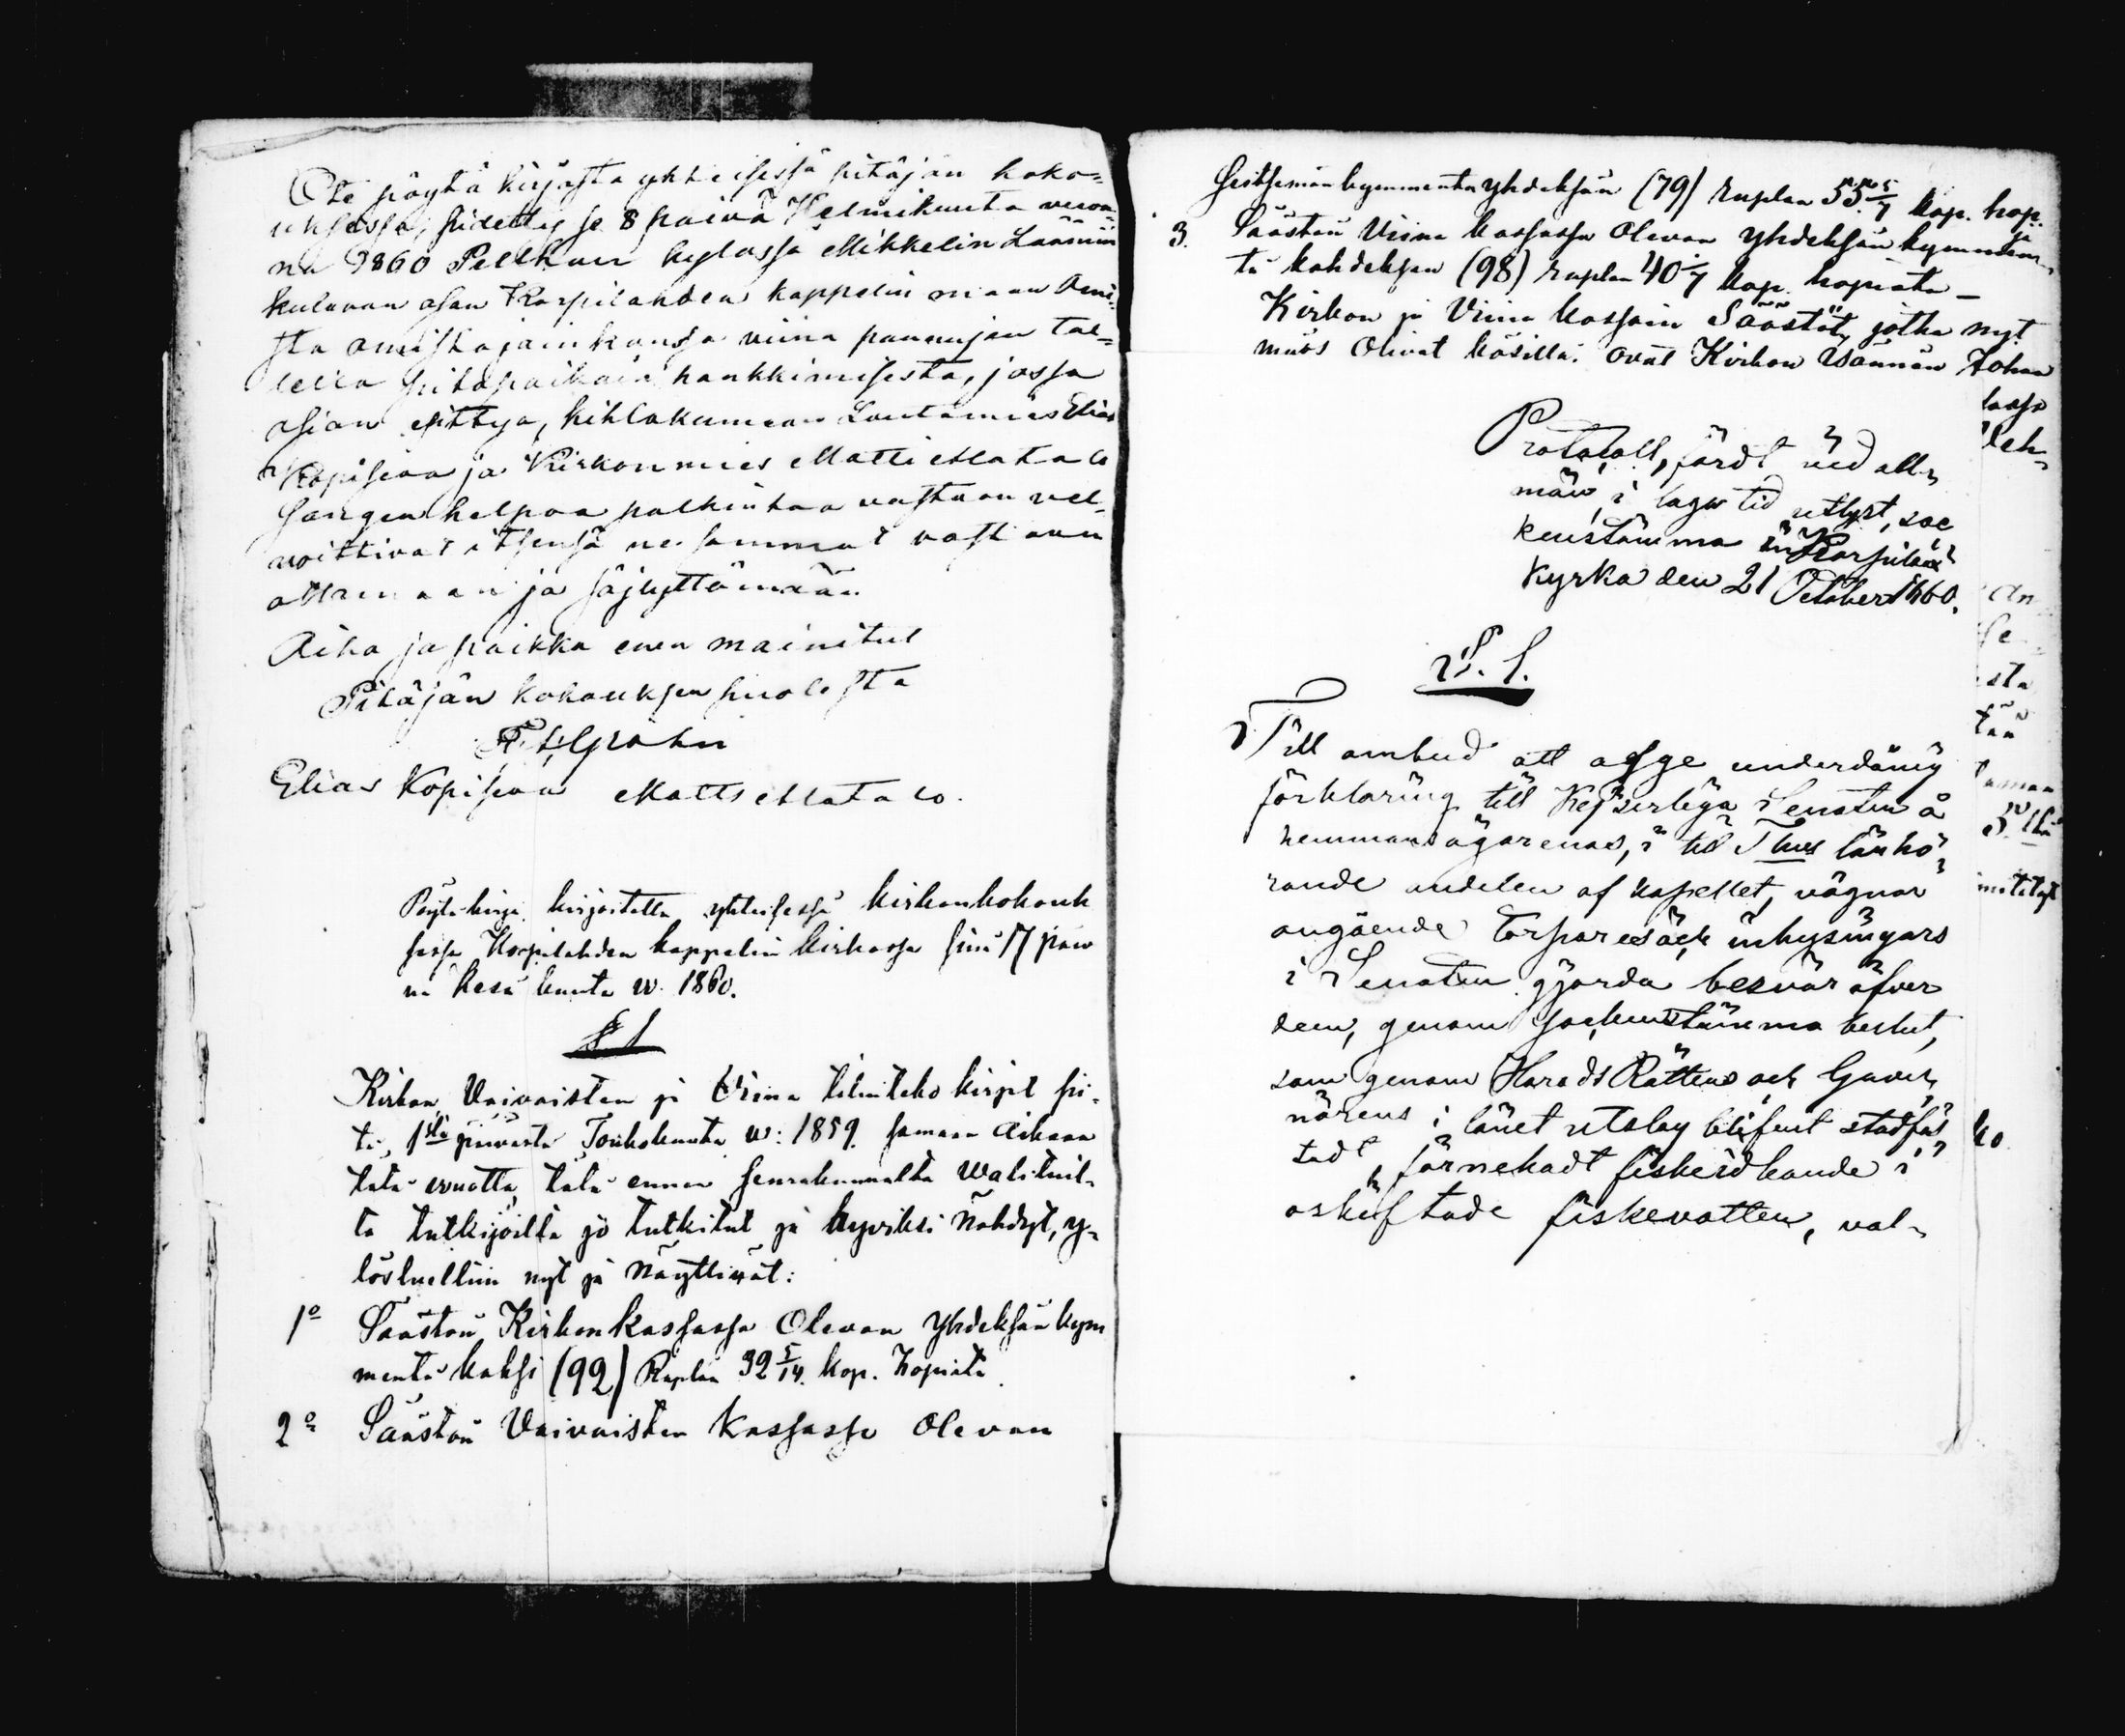 Ote pöytä kirjasta yhteisessä pitäjän koko-
uksessa, pidetty se 8 päivä Helmikuuta vuon-
na 1860 Pellhan kylässä Mikkelin Läänin
kuluvan osan Korpilahden kappelin maan Omi-
sta omistajain kanssa viina pannujen tal-
lella pitopaikain hankkimisesta, jossa
asian esittyä, kihlakunnan Lautamies Elias
Kopisena ja Kirkonmies Matti Matalo
sangen helpoa palkintoa vastaan vel-
voittivat itsensä ne sammat vastaan
ottamaan ja säjlyttämään.
Aika ja paikka enen mainitut
Pitäjän kokouksen puolesta
F. H. Gråhn
Elias Kopisena Matts Matalo.
Pöytäkirja kirjoitettu yhteisessä kirkonkokouk
sessa Korpilahden kappelin kirkossa sinä 17 päiv
nä Kesä kuuta w. 1860.
§. 1
Kirkon, Vaivaisten ja Viina tilinteko kirjat pi-
tä, 1stä päivästä Toukokuuta w: 1859. samaan Aikaan
tätä wuotta, tätä ennen seurakunnalta Walituil-
ta tutkijoilta jo tutkitut ja hyviksi Nähdyt, y-
löslueltiin nyt ja Näyttivät:
1o Säästön Kirkon kassassa Olevan yhdeksän kym
mentä kaksi (92) Ruplan 32 5/14. kop. hopiata
2o Säästön Vaivaisten Kassassa Olevan
Seitsemän kymmentä yhdeksän (79) ruplan 55 5/7 kop. hop. ja
3. Säästön Viina kassassa Olevan yhdeksän kymmen-
tä kahdeksan (98) ruplan 40 1/7 kop. hopiata –
Kirkon ja Viina kassain Säästöt, jotka nyt
müös Olivat käsillä: ovat Kirkon Isännän Johan
Protokoll, fördt vid all-
män, i laga tid utlyst, soc
kenstämma in Korpilax
Kyrka den 21 October 1860.
§. 1.
Till ombud att afge underdånig
förklaring till Kejserliga Senaten å
hemmansägarenas, i till Thus länhö-
rande andelen af kapellet, vägnar
angående Torpares och inhysingars
i Senaten gjorda besvär öfver
den, genom sockenstämma beslut,
som genom Härads Rättens och Guver-
nörens i länet utslag blifvit stadfäs
tadt, förnekadt fiskeidkande i
oskiftade fiskevatten, val-